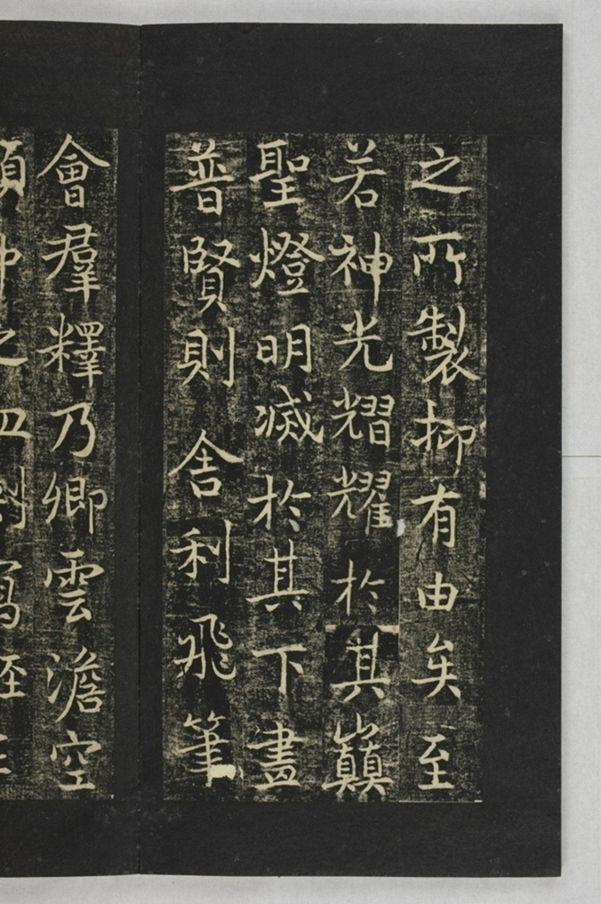 之所製抑有由矣至
若神光熠耀於其巔
聖燈明滅於其下畫
普賢則舍利飛筆
會羣釋乃卿雲澹空